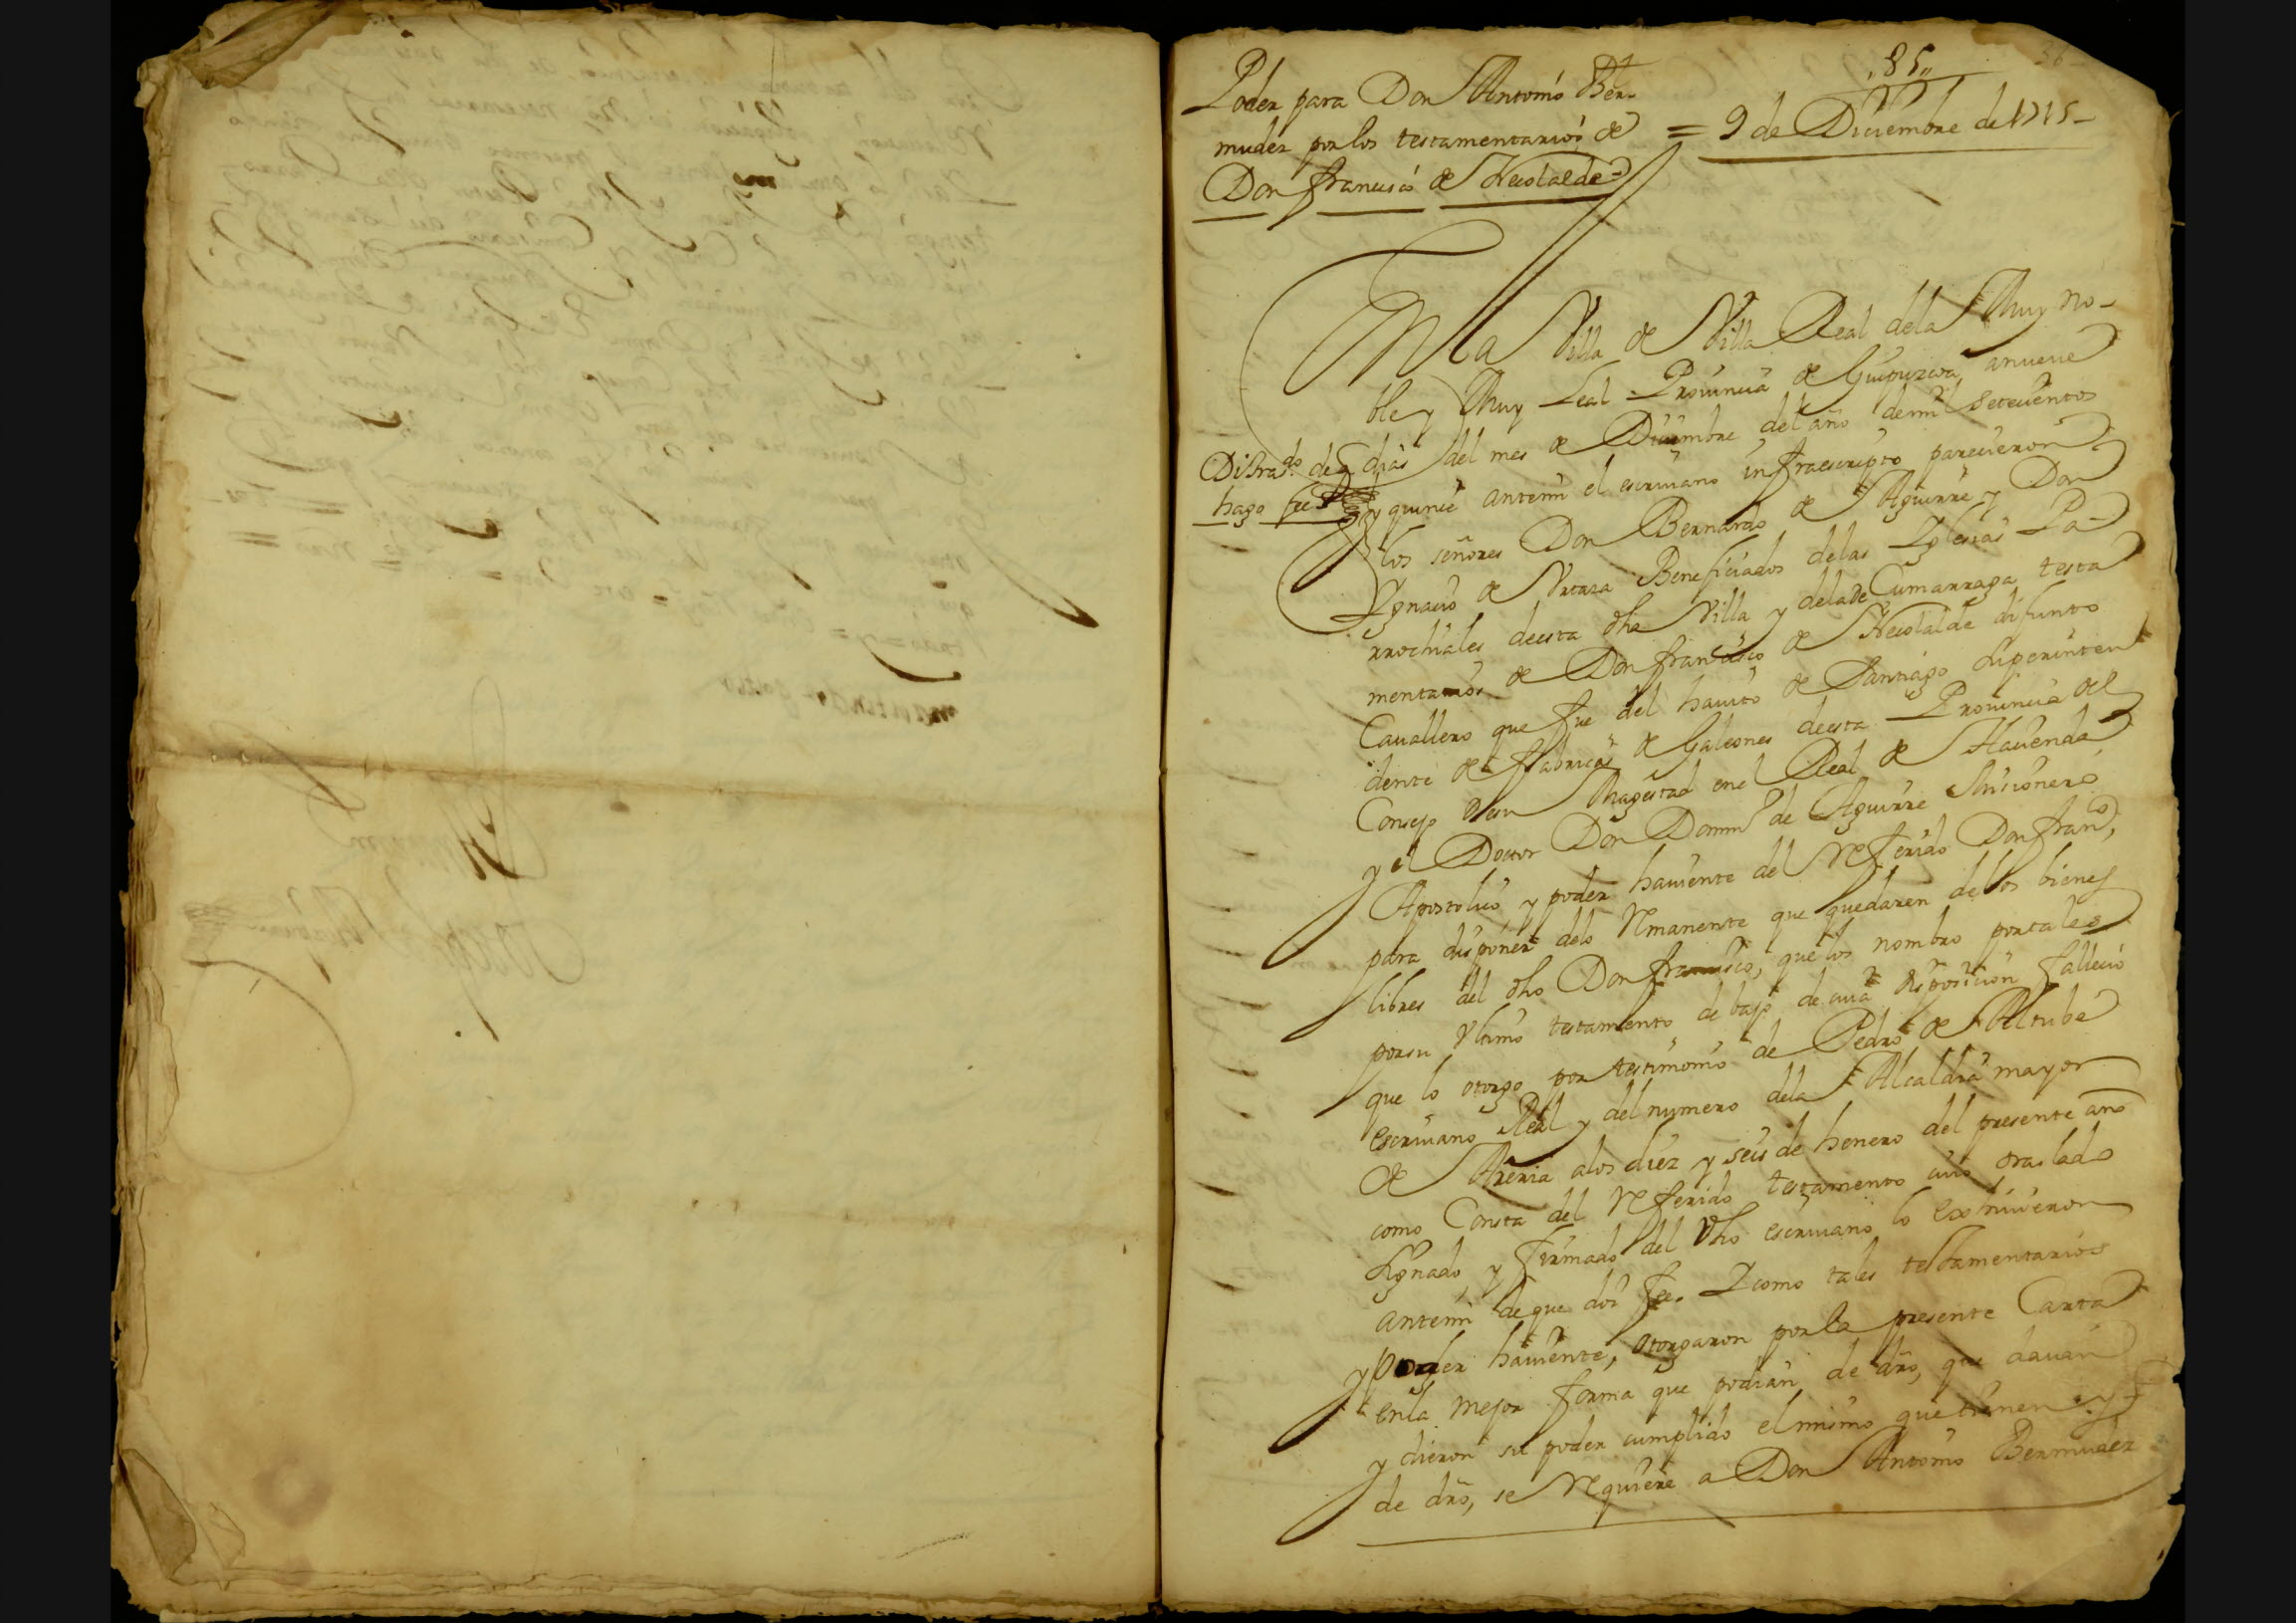 85
38
Poder para Don Antonio Ber-
mudez por los testamentarios de = 9 de Diciembre de 1715-
Don francisco de Necolalde
En la Villa de Villa Real dela Muy no-
ble y Muy Leal Prouincia de Guipuzcoa anueue
dias del mes de Diciembre del año demil Setecientos
y quince antemi el escriuano infraescripto parecieron
Distrado de
hago fee
los señores Don Bernardo de Aguirre y Don
Ygnacio de Vrtaza Beneficiados delas Yglesias Pa-
rrochiales deesta dha Villa y delade Cumarraga testa
mentarios de Don francisco de Necolalde difunto
Cauallero que fue del hauito de Santiago Superinten
dente de fabricas de Galeones deesta Prouincia del
Consejo desu Magestad enel Real de Hacienda
y el Doctor Don Domin de Aguirre Misionero
Apostolico y poder hauiente del Referido Don franco,
para disponer delo Remanente que quedaren delos bienes
libres del dho Don francisco, que los nombro portales
porsu Vltimo testamento debajo de cuia disposicion fallecio
que lo otorgo por testimonio de Pedro de Altube
escriuano Real y del numero dela Alcaldia mayor
de Areria alos diez y seis de henero del presente año
como Consta del Referido testamento cuio traslado
signado y firmado del dho escriuano lo exhiuieron
antemi de que doi fee. Y como tales testamentarios
y poder hauiente, otorgaron por la presente Carta
enla mejor forma que podian de dro, que dauan
y dieron su poder cumplido el mismo que tienen y
de dro, se Requiere a Don Antonio Bermudez